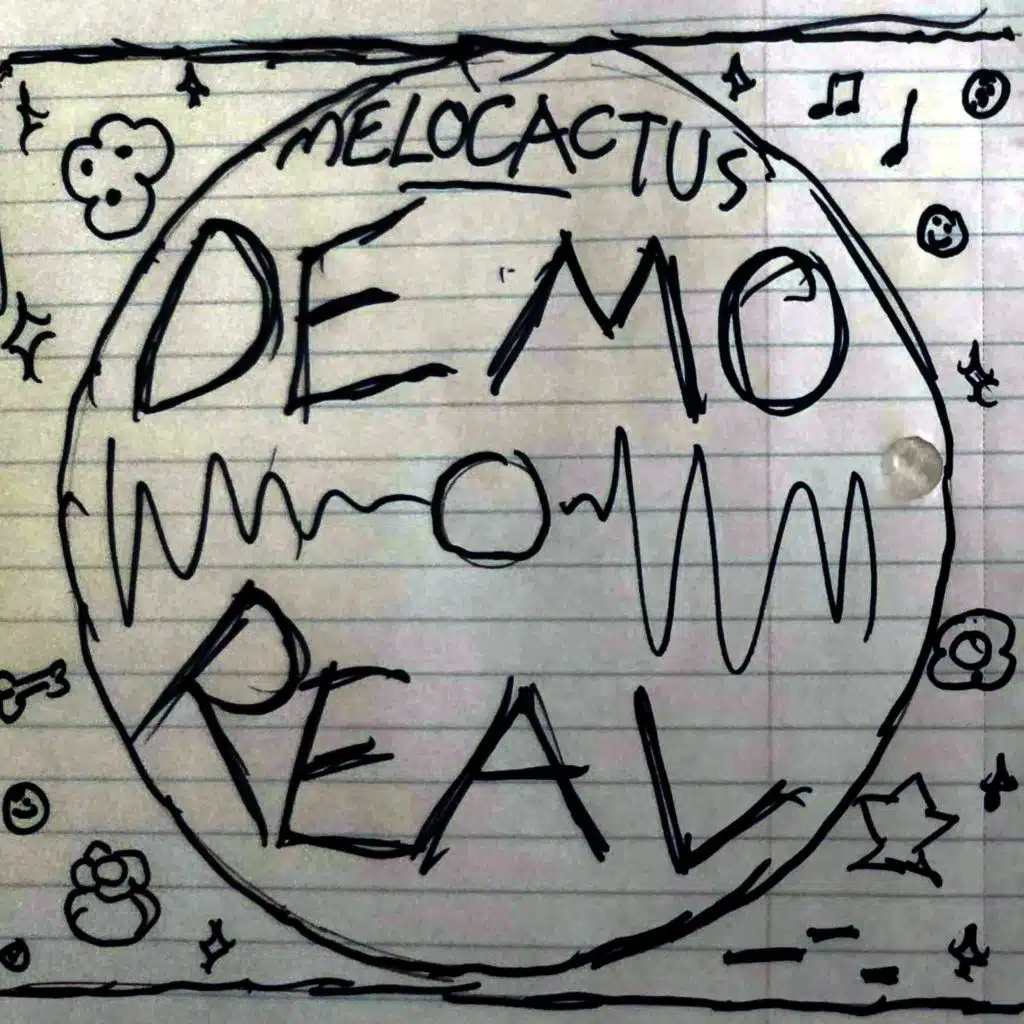 MELOCACTUS
DEMO
REAL